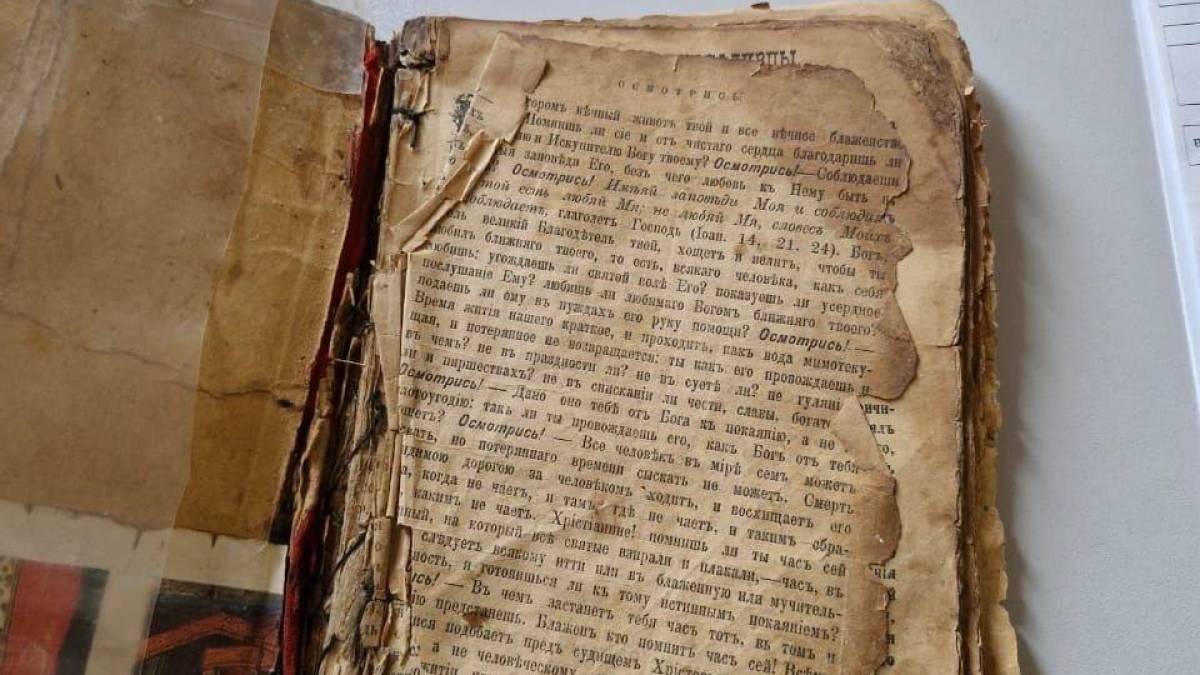 ОСМОТРИСЬ
торомъ вѣчный животъ твой и все вѣчное блаженств
Помнишь ли сіе и отъ чистаго сердца благодаришь ли
ю и Искупителю Богу твоему? Осмотрись!—Соблюдаеши
ыя заповѣди Его, безъ чего любовь къ Нему быть н
Осмотрись! Имѣяй заповѣди Моя и соблюдаяй
той есть любяй Мя; не любяй Мя, словесъ Моихъ
облюдаетъ, глаголетъ Господь (Іоан. 14. 21. 24). Богъ,
ль великій Благодѣтель твой, хощетъ и велитъ, чтобы ты
любилъ ближняго твоего, то есть, всякаго человѣка, какъ себя
любишь: угождаешь ли святой волѣ Его? показуешь ли усердное
послушаніе Ему? любишь ли любимаго Богомъ ближняго твоего?
подаешь ли ему въ нуждахъ его руку помощи? Осмотрись!—
Время житія нашего краткое, и проходитъ, какъ вода мимотеку-
щая, и потерянное не возвращается: ты какъ его провождаешь и
въ чемъ? не въ праздности ли? не въ суетѣ ли? не гуляні
ли и пиршествахъ? не въ снисканіи ли чести, славы, богат
Осмотрись! — Дано оно тебѣ отъ Бога къ покаянію, а не
лотоугодію: такъ ли ты провождаешь его, какъ Богъ отъ тебя
шетъ? Осмотрись! — Все человѣкъ въ мірѣ семъ можетъ
скать, но потеряннаго времени сыскать не можетъ. Смерть
идимою дорогою за человѣкомъ ходитъ, и восхищаетъ его
а, когда не чаетъ, и тамъ, гдѣ не чаетъ, и такимъ обра-
какимъ не чаетъ. Хрістіанине! помнишь ли ты часъ сей
ный, на который всѣ святые взирали и плакали,—часъ, въ
слѣдуетъ всякому итти или въ блаженную или мучитель-
ность, и готовишься ли къ тому истиннымъ покаяніемъ?
ись! — Въ чемъ застанетъ тебя часъ тотъ, въ томъ и
ію предстанешь. Блаженъ кто помнитъ часъ сей! Всѣ
ися подобаетъ предъ судищемъ Хрісто
: а не человѣческому